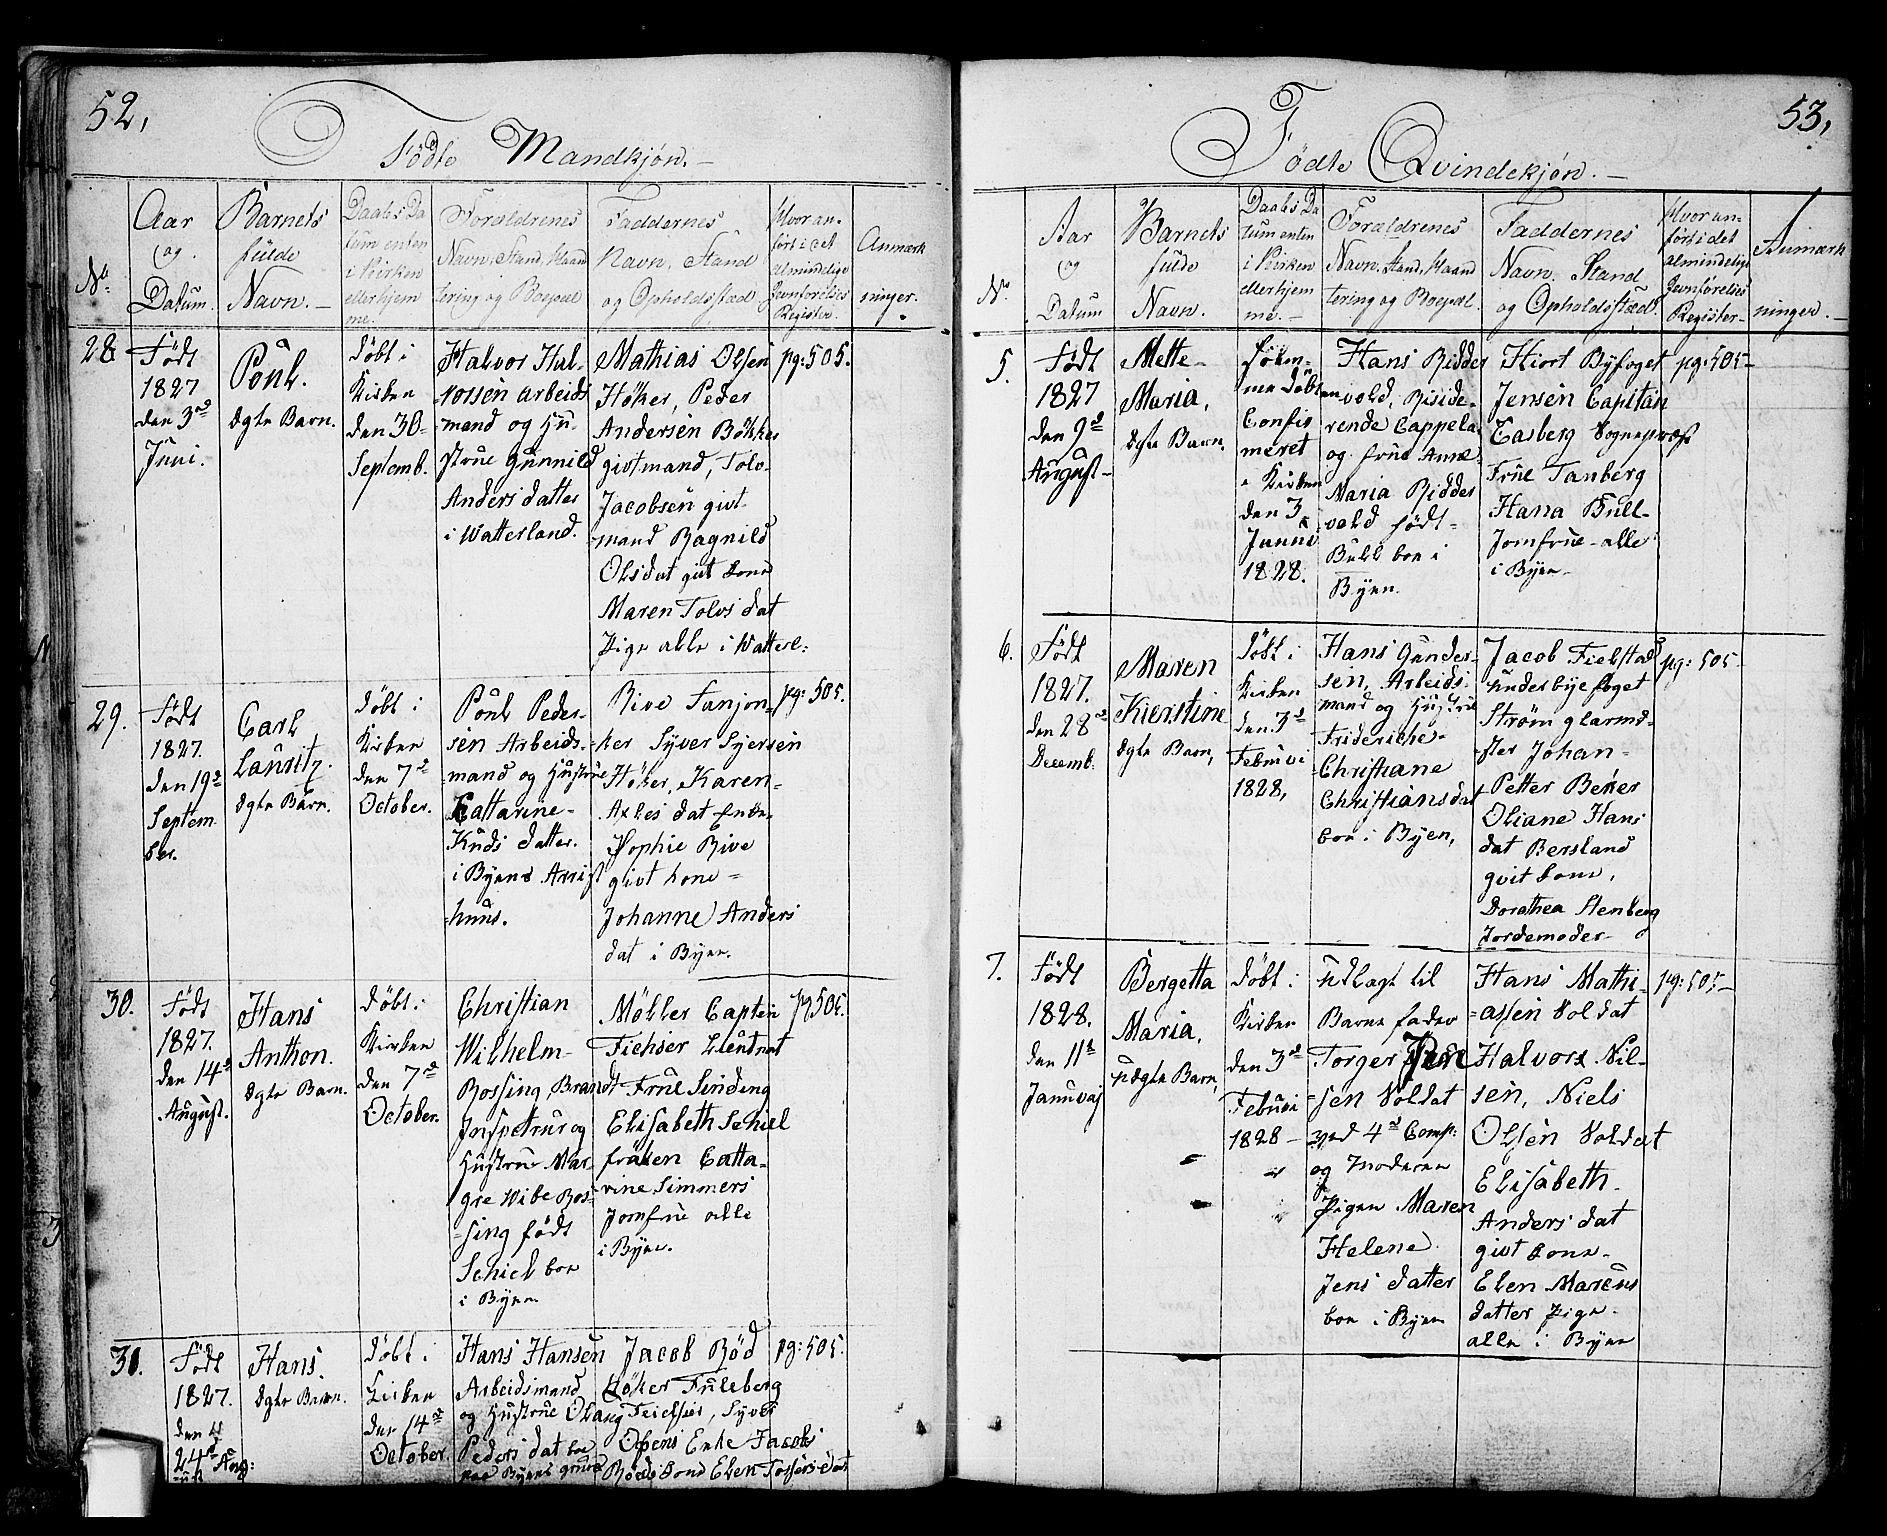 52,
Födte Mandkjön.
No.
Aar
og
Datum.
Barnets
fulde
Navn.
Daabs Da
tum enten
i Kirken
eller hjem
me.
Forældrenes
Navn, Stand, Haand
tering og Boepæl
Faddernes
Navn, Stand
og Opholdsstæd
Hvor an-
ført i det
almindelige
Jevnførelses
Register.
Anmærk
ninger.
28
Födt
1827
den 3d
Juni.
Poul.
Ægte Barn.
Döbt i
Kirken
den 30
Septemb.
Halvor Hal-
vorsen Arbeids
mand og Hu-
strue Gunnild
Anders datter
i Watterland.
Mathias Olsen
Höker, Peder
Andersen Bökker
givt mand, Tolv
Jacobsen givt
mand Ragnild
Olsdat givt Kone
Maren Tolvs dat
Pige alle i Watterl:
pg: 505.
29.
Födt
1827.
den 19d
Septem
ber.
Carl
Lauritz.
Ægte Barn.
Döbt i
Kirken
den 7d
October.
Poul Peder-
sen Arbeids-
mand og Hustrue
Cattarine
Knds datter.
i Byens Arrist
huus.
Rive Junjon-
ker Syver Syersen
Höker, Karen
Axles dat Enke.
Sophie Rive
givt kone
Johanne Anders
dat i Byen.
pg: 505.
30.
Födt
1827.
den 14d
August.
Hans
Anthon.
Ægte Barn.
Döbt i
Kirken
den 7d
October.
Christian
Wilhelm
Rossing, Brand
Inspetrur og
Hustrue Mar-
gre Wibe Ros-
sing födt
Schiel boe
i Byen
Möller Captein
Fichser Lieutnat
Frue Sinding
Elisabeth Schiel
fröken Catta-
rine Simmers
Jomfrue alle
i Byen.
pg 505.
31.
Födt
1827.
den
24d Aug:
Hans.
Ægte Barn.
Döbt i
Kirken
den 14d
October.
Hans Hansen
Arbeidsmand
og Hustrue Olaug
Peders dat boe
paa Byens grund
Jacob Röd
Höker Fuleberg
Feichser, Syver
Olsens Enke Jacob
Röds Kone Elen Tossers dat
pg: 505.
53,
Födte Qvindekjön.
No.
Aar
og
Datum
Barnets
fulde
Navn.
Daabs Da
tum enten
i Kirken
eller hjem
me.
Forældrenes
Navn, Stand, Haand
tering og Boepæl.
Faddernes
Navn, Stand
og Opholdsstæd.
Hvor an-
ført i det
almindelige
Jevnførelses
Register
Anmærk
ninger.
5.
Födt
1827
den 9d
August
Mette
Maria,
Ægte Barn.
Hiem-
me Döbt
Confir
meret
i Kirken
den 3
Junni
1828.
Hans Ridder
vold, Reside-
rende Cappelan
og frue Anne
Maria Ridder
vold födt
Bull boe i
Byen.
Hiort Byfoget
Jensen Capitan
Tasberg Sognepræst
Frue Tanberg
Hana Bull
Jomfrue alle
i Byen
pg: 505
6.
Födt
1827.
den 28d
Decemb.
Maren
Kierstine
Ægte Barn,
Döbt i
Kirken
den 3d
Februvi
1828,
Hans Gunder-
sen, Arbeids
mand og Hustrue
Frideriche
Christiane
Christiansdat
boe i Byen,
Jacob Fielstad
Underbyefoget
Ström glarmd-
ster Johan
Petter Beker
Oliane Hans
dat Bersland
gvit Kone,
Dorathea Stenberg
Jordemoder
pg: 505
7.
Födt
1828.
den 11d
Januvaj
Bergetta
Maria,
uægte Barn,
Döbt i
Kirken
den 3d
Februvi
1828
Udlagt til
Barne fader
Torger Jen
sen Soldat
ved 4d Comp:
og Moderen
Pigen Maren
Helene
Jens datter
boe i Byen
Hans Mathi-
assen Soldat
Halvors Nil-
sen, Niels
Olsen Soldat
Elisabeth
Anders dat
givt Kone
Elen Marcus
datter Pige
alle i Byen
pg: 505